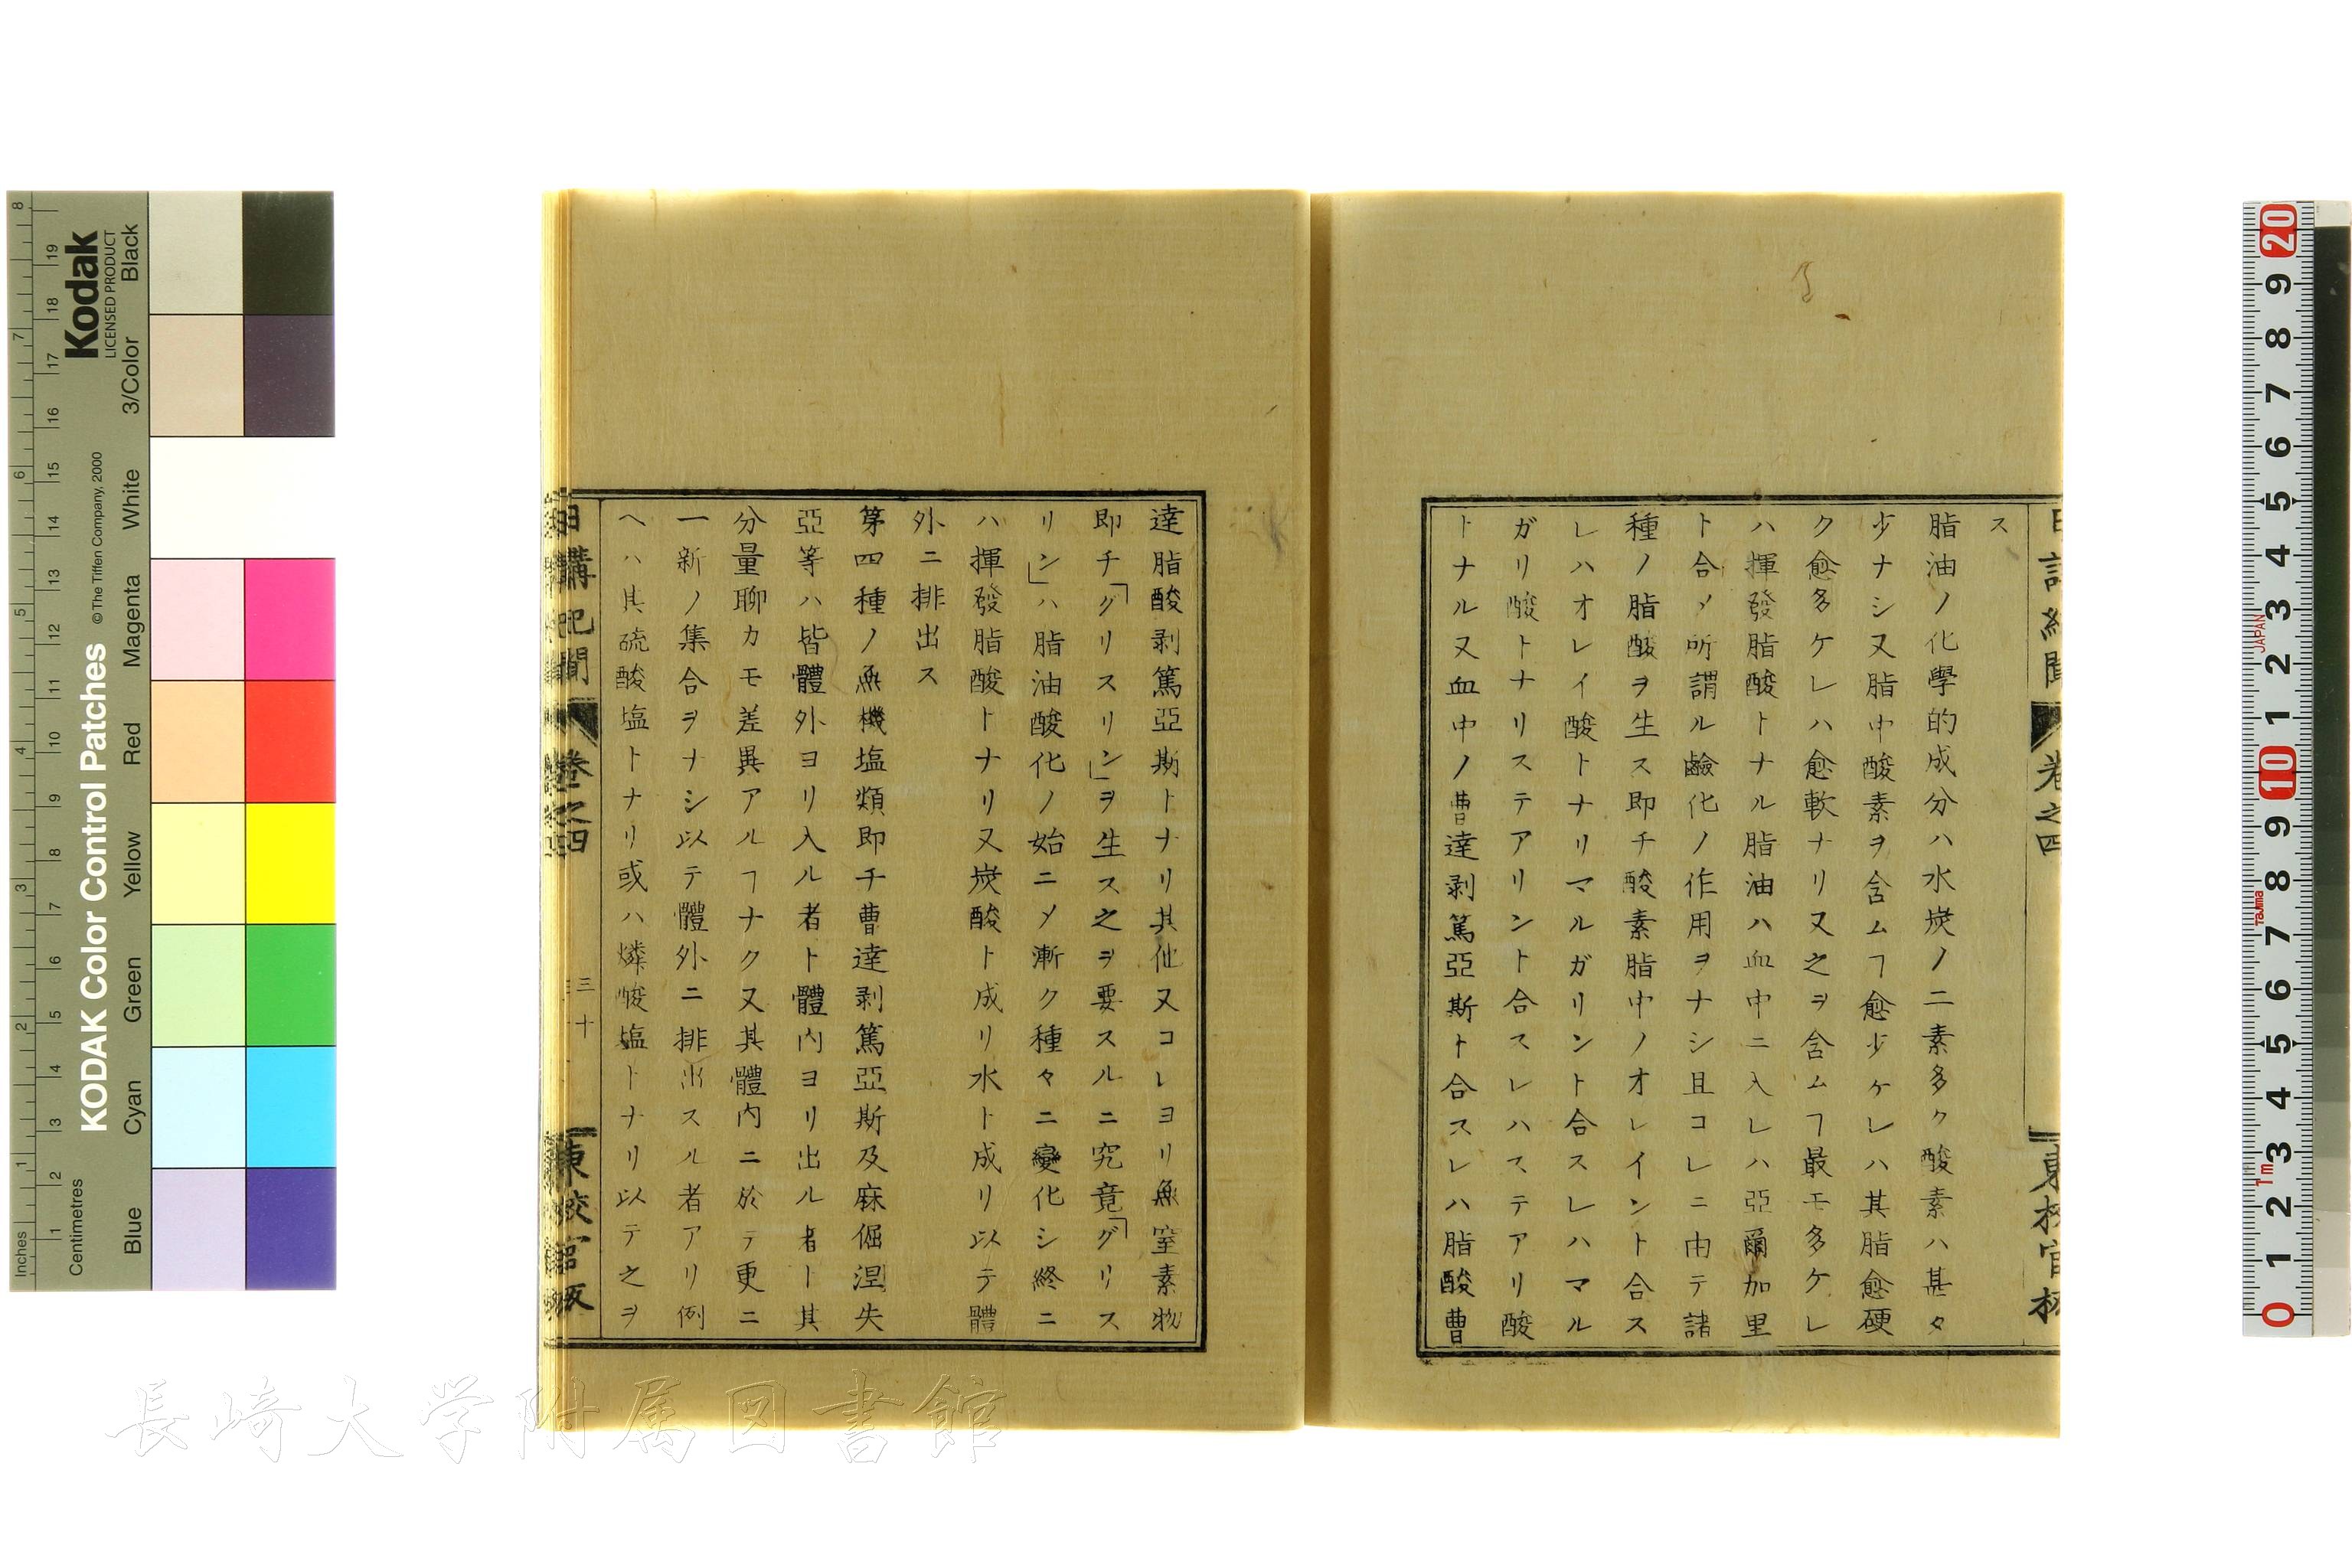 ス
脂油ノ化學的成分ハ水炭ノ二素多ク酸素ハ甚タ
少ナシ又脂中酸素ヲ含ムヿ愈少ケレハ其脂愈硬
ク愈多ケレハ愈軟ナリ又之ヲ含ムヿ最モ多ケレ
ハ揮發脂酸トナル脂油ハ血中ニ入レハ亞爾加里
ト合メ所謂ル鹼化ノ作用ヲナシ且コレニ由テ諸
種ノ脂酸ヲ生ス即チ酸素脂中ノオレイント合ス
レハオレイ酸トナリマルガリント合スレハマル
ガリ酸トナリステアリント合スレハステアリ酸
トナル又血中ノ曹達剥篤亞斯ト合スレハ脂酸曹
達脂酸剥篤亞斯トナリ其他又コレヨリ無窒素物
即チ「グリスリン」ヲ生ス之ヲ要スルニ究竟「グリス
リン」ハ脂油酸化ノ始ニメ漸ク種々ニ變化シ終ニ
ハ揮發脂酸トナリ又炭酸ト成リ水ト成リ以テ體
外ニ排出ス
第四種ノ無機塩類即チ曹達剥篤亞斯及麻倔涅失
亞等ハ皆體外ヨリ入ル者ト體内ヨリ出ル者ト其
分量聊カモ差異アルヿナク又其體内ニ於テ更ニ
一新ノ集合ヲナシ以テ體外ニ排出スル者アリ例
ヘハ其硫酸塩トナリ或ハ燐酸塩トナリ以テ之ヲ
日講記聞 卷之四 三十 東校官板
Kodak
LICENSED PRODUCT
KODAK Color Control Patches
© The Tiffen Company, 2000
Inches
Centimetres
Blue Cyan Green Yellow Red Magenta White 3/Color Black
1 2 3 4 5 6 7 8
1 2 3 4 5 6 7 8 9 10 11 12 13 14 15 16 17 18 19
20 9 8 7 6 5 4 3 2 1 10 9 8 7 6 5 4 3 2 1 0
JAPAN
Tajima
1m
長崎大学附属図書館